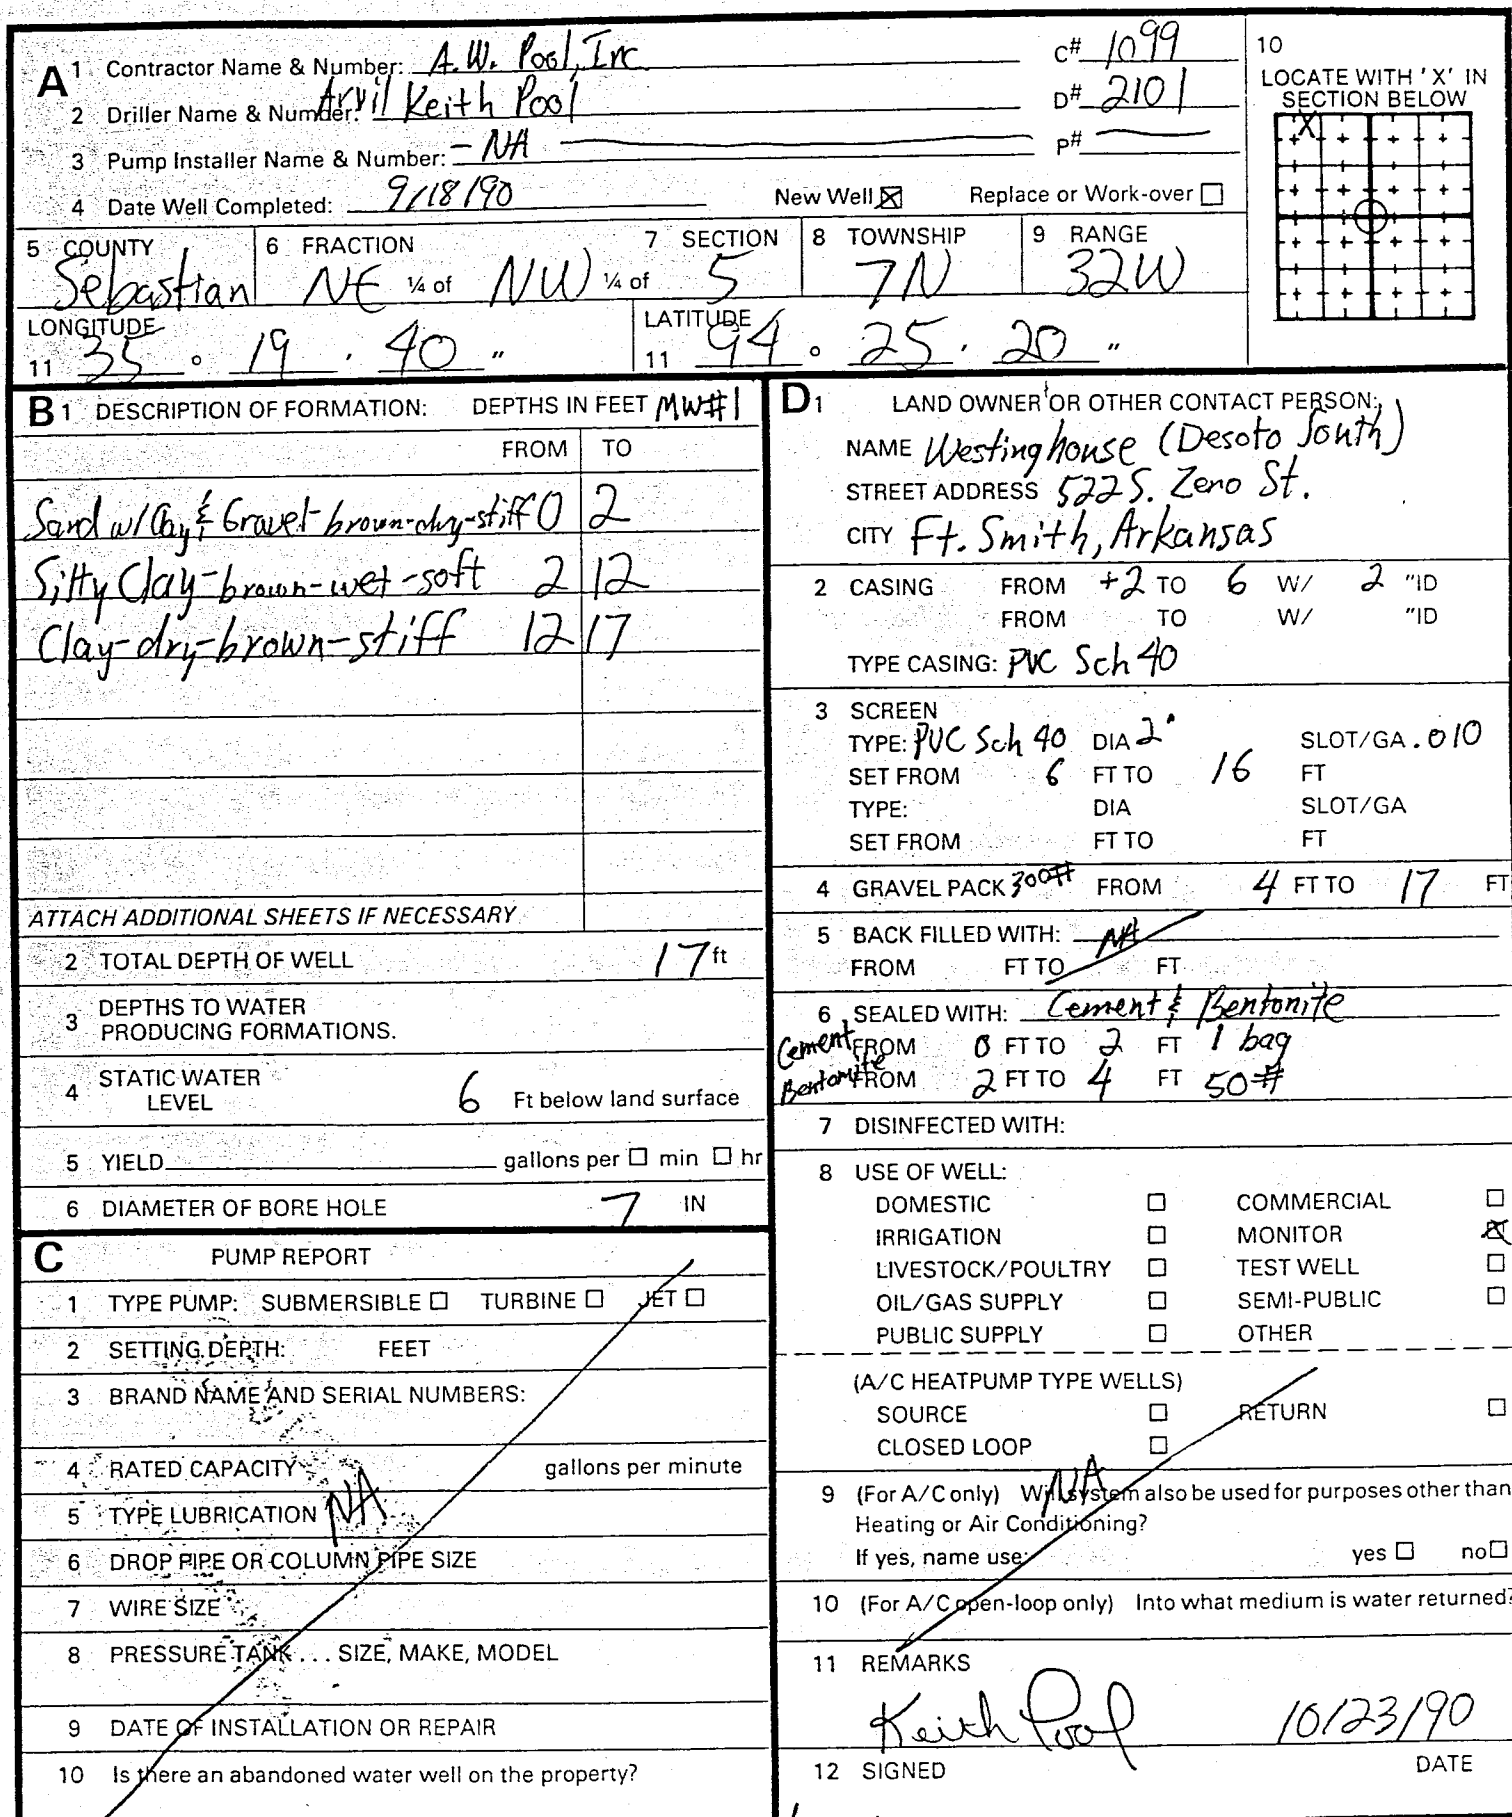 A 1 Contractor Name & Number: A.W. Pool, Inc. C# 1099
2 Driller Name & Number: Arvil Keith Pool D# 2101
3 Pump Installer Name & Number: - NA P#
4 Date Well Completed: 9/18/90 New Well ☒ Replace or Work-over ☐
10
LOCATE WITH 'X' IN
SECTION BELOW
X
5 COUNTY 6 FRACTION 7 SECTION 8 TOWNSHIP 9 RANGE
Sebastian NE ¼ of NW ¼ of 5 7N 32W
LONGITUDE LATITUDE
11 35 ° 19 ' 40 " 11 94 ° 25 ' 20 "
B 1 DESCRIPTION OF FORMATION: DEPTHS IN FEET MW#1
FROM TO
Sand w/ Clay & Gravel-brown-dry-stiff 0 2
Silty Clay-brown-wet-soft 2 12
Clay-dry-brown-stiff 12 17
ATTACH ADDITIONAL SHEETS IF NECESSARY
2 TOTAL DEPTH OF WELL 17 ft
3 DEPTHS TO WATER
PRODUCING FORMATIONS.
4 STATIC WATER
LEVEL 6 Ft below land surface
5 YIELD gallons per ☐ min ☐ hr
6 DIAMETER OF BORE HOLE 7 IN
C PUMP REPORT
1 TYPE PUMP: SUBMERSIBLE ☐ TURBINE ☐ JET ☐
2 SETTING DEPTH: FEET
3 BRAND NAME AND SERIAL NUMBERS:
4 RATED CAPACITY gallons per minute
5 TYPE LUBRICATION NA
6 DROP PIPE OR COLUMN PIPE SIZE
7 WIRE SIZE
8 PRESSURE TANK . . . SIZE, MAKE, MODEL
9 DATE OF INSTALLATION OR REPAIR
10 Is there an abandoned water well on the property?
D 1 LAND OWNER OR OTHER CONTACT PERSON:
NAME Westinghouse (Desoto South)
STREET ADDRESS 522 S. Zeno St.
CITY Ft. Smith, Arkansas
2 CASING FROM +2 TO 6 W/ 2 "ID
FROM TO W/ "ID
TYPE CASING: PVC Sch 40
3 SCREEN
TYPE: PVC Sch 40 DIA 2" SLOT/GA .010
SET FROM 6 FT TO 16 FT
TYPE: DIA SLOT/GA
SET FROM FT TO FT
4 GRAVEL PACK 300# FROM 4 FT TO 17 FT
5 BACK FILLED WITH: NA
FROM FT TO FT
6 SEALED WITH: Cement & Bentonite
Cement FROM 0 FT TO 2 FT 1 bag
Bentonite FROM 2 FT TO 4 FT 50#
7 DISINFECTED WITH:
8 USE OF WELL:
DOMESTIC ☐ COMMERCIAL ☐
IRRIGATION ☐ MONITOR ☒
LIVESTOCK/POULTRY ☐ TEST WELL ☐
OIL/GAS SUPPLY ☐ SEMI-PUBLIC ☐
PUBLIC SUPPLY ☐ OTHER
(A/C HEATPUMP TYPE WELLS)
SOURCE ☐ RETURN ☐
CLOSED LOOP ☐
NA
9 (For A/C only) Will system also be used for purposes other than
Heating or Air Conditioning?
If yes, name use: yes ☐ no ☐
10 (For A/C open-loop only) Into what medium is water returned?
11 REMARKS
Keith Pool 10/23/90
12 SIGNED DATE